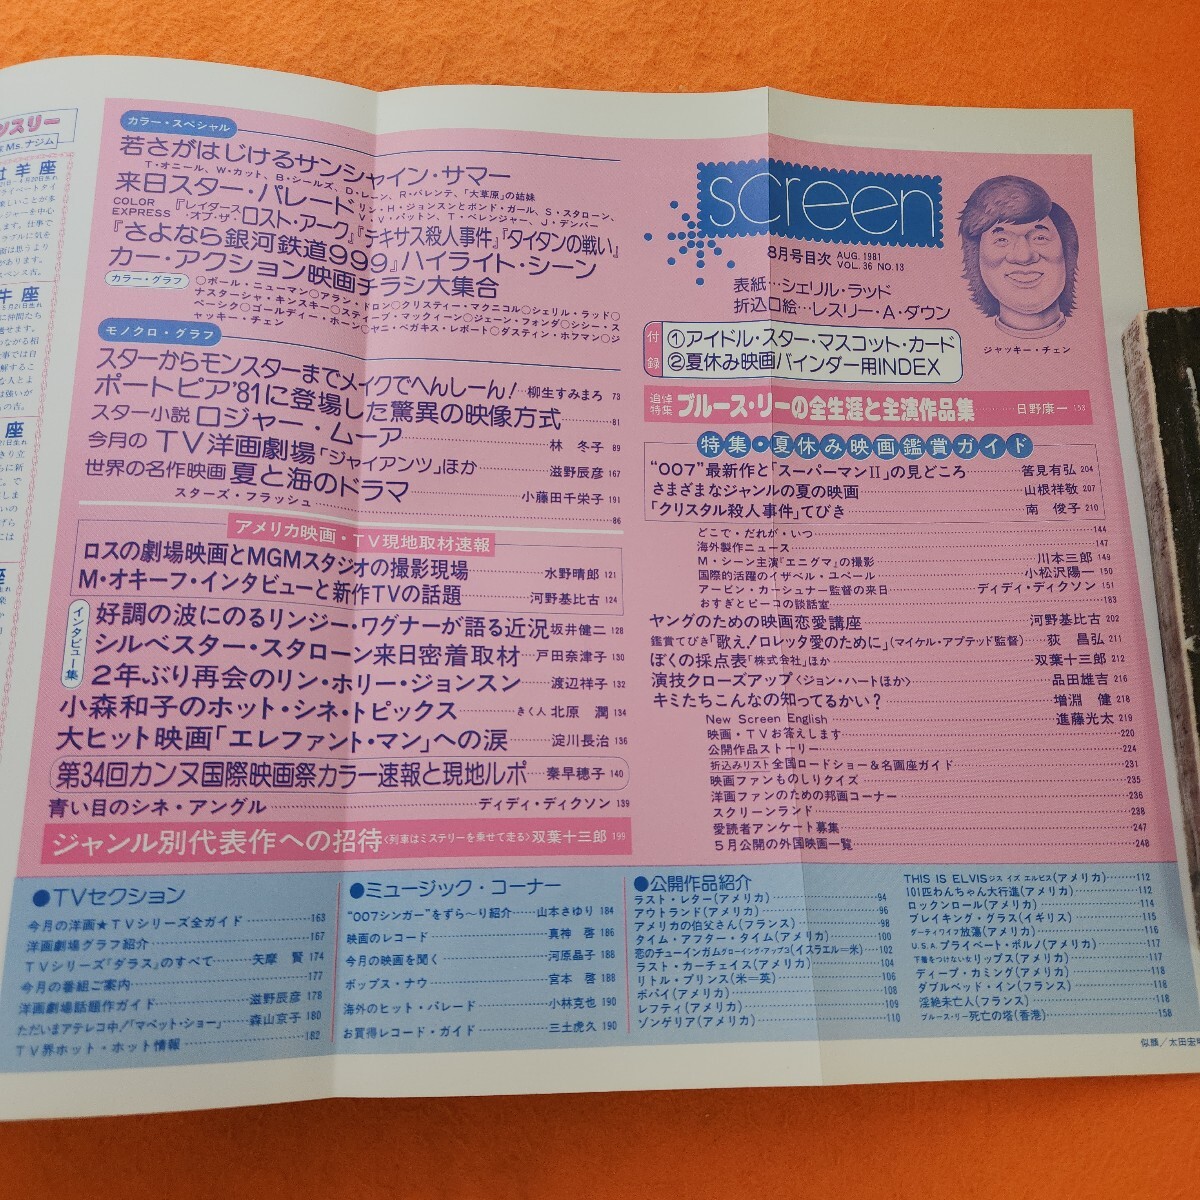 カラー・スペシャル
若さがはじけるサンシャイン・サマー
T・オニール、W・カット、B・シールズ、D・レーン、R・バレンテ、「大草原」の姉妹
来日スター・パレード
リン・H・ジョンスンとボンド・ガール、S・スタローン、
V・V・パットン、T・ベレンジャー、J・デンバー
COLOR EXPRESS
『レイダース・オブ・ザ・ロスト・アーク』『テキサス殺人事件』『タイタンの戦い』
『さよなら銀河鉄道999』ハイライト・シーン
カー・アクション映画チラシ大集合
カラー・グラフ
○ポール・ニューマン○アラン・ドロン○クリスティー・マクニコル○シェリル・ラッド○
ナスターシャ・キンスキー○スティーブ・マックィーン○ジェーン・フォンダ○シシー・ス
ペーシク○ゴールディー・ホーン○ヤニ・ベガキス・レポート○ダスティン・ホフマン○ジ
ャッキー・チェン
モノクロ・グラフ
スターからモンスターまでメイクでへんしーん!…柳生すみまろ 73
ポートピア'81に登場した驚異の映像方式 81
スター小説 ロジャー・ムーア 林 冬子 89
今月のTV洋画劇場「ジャイアンツ」ほか 滋野辰彦 167
世界の名作映画 夏と海のドラマ 小藤田千栄子 191
スターズ・フラッシュ 86
アメリカ映画・TV現地取材速報
ロスの劇場映画とMGMスタジオの撮影現場 水野晴郎 121
M・オキーフ・インタビューと新作TVの話題 河野基比古 124
インタビュー集
好調の波にのるリンジー・ワグナーが語る近況 坂井健二 128
シルベスター・スタローン来日密着取材 戸田奈津子 130
2年ぶり再会のリン・ホリー・ジョンスン 渡辺祥子 132
小森和子のホット・シネ・トピックス きく人 北原 潤 134
大ヒット映画「エレファント・マン」への涙 淀川長治 136
第34回カンヌ国際映画祭カラー速報と現地ルポ 秦早穂子 140
青い目のシネ・アングル ディディ・ディクソン 139
ジャンル別代表作への招待〈列車はミステリーを乗せて走る〉双葉十三郎 199
screen
8月号目次 AUG. 1981
VOL. 36 NO.13
表紙…シェリル・ラッド
折込口絵…レスリー・A・ダウン
ジャッキー・チェン
付録
①アイドル・スター・マスコット・カード
②夏休み映画バインダー用INDEX
追悼特集 ブルース・リーの全生涯と主演作品集 日野康一 153
特集・夏休み映画鑑賞ガイド
“007”最新作と「スーパーマンII」の見どころ 筈見有弘 204
さまざまなジャンルの夏の映画 山根祥敬 207
「クリスタル殺人事件」てびき 南 俊子 210
どこで・だれが・いつ 144
海外製作ニュース 147
M・シーン主演『エニグマ』の撮影 川本三郎 149
国際的活躍のイザベル・ユペール 小松沢陽一 150
アービン・カーシュナー監督の来日 ディディ・ディクソン 151
おすぎとピーコの談話室 183
ヤングのための映画恋愛講座 河野基比古 202
鑑賞てびき「歌え!ロレッタ愛のために」(マイケル・アプテッド監督) 荻 昌弘 211
ぼくの採点表「株式会社」ほか 双葉十三郎 212
演技クローズアップ〈ジョン・ハートほか〉 品田雄吉 216
キミたちこんなの知ってるかい? 増淵 健 218
New Screen English 進藤光太 219
映画・TVお答えします 220
公開作品ストーリー 224
折込みリスト全国ロードショー&名画座ガイド 231
映画ファンものしりクイズ 235
洋画ファンのための邦画コーナー 236
スクリーンランド 238
愛読者アンケート募集 247
5月公開の外国映画一覧 248
●TVセクション
今月の洋画★TVシリーズ全ガイド 163
洋画劇場グラフ紹介 167
TVシリーズ「ダラス」のすべて 矢摩 賢 174
今月の番組ご案内 177
洋画劇場話題作ガイド 滋野辰彦 178
ただいまアテレコ中!「マペット・ショー」 森山京子 180
TV界ホット・ホット情報 182
●ミュージック・コーナー
“007シンガー”をずら〜り紹介 山本さゆり 184
映画のレコード 真神 啓 186
今月の映画を聞く 河原晶子 186
ポップス・ナウ 宮本 啓 188
海外のヒット・パレード 小林克也 190
お買得レコード・ガイド 三土虎久 190
●公開作品紹介
ラスト・レター(アメリカ) 94
アウトランド(アメリカ) 96
アメリカの伯父さん(フランス) 98
タイム・アフター・タイム(アメリカ) 100
恋のチューインガム グローイング・アップ3(イスラエル=米) 102
ラスト・カーチェイス(アメリカ) 104
リトル・プリンス(米=英) 106
ポパイ(アメリカ) 108
レフティ(アメリカ) 109
ゾンゲリア(アメリカ) 110
THIS IS ELVIS ジス イズ エルビス(アメリカ) 112
101匹わんちゃん大行進(アメリカ) 112
ロックンロール(アメリカ) 114
ブレイキング・グラス(イギリス) 115
ダーティワイフ 放蕩(アメリカ) 116
U.S.A.プライベート・ポルノ(アメリカ) 117
下着をつけない女 リップス(アメリカ) 117
ディープ・カミング(アメリカ) 118
ダブルベッド・イン(フランス) 118
淫絶未亡人(フランス) 118
ブルース・リー 死亡の塔(香港) 158
似顔/太田宏明